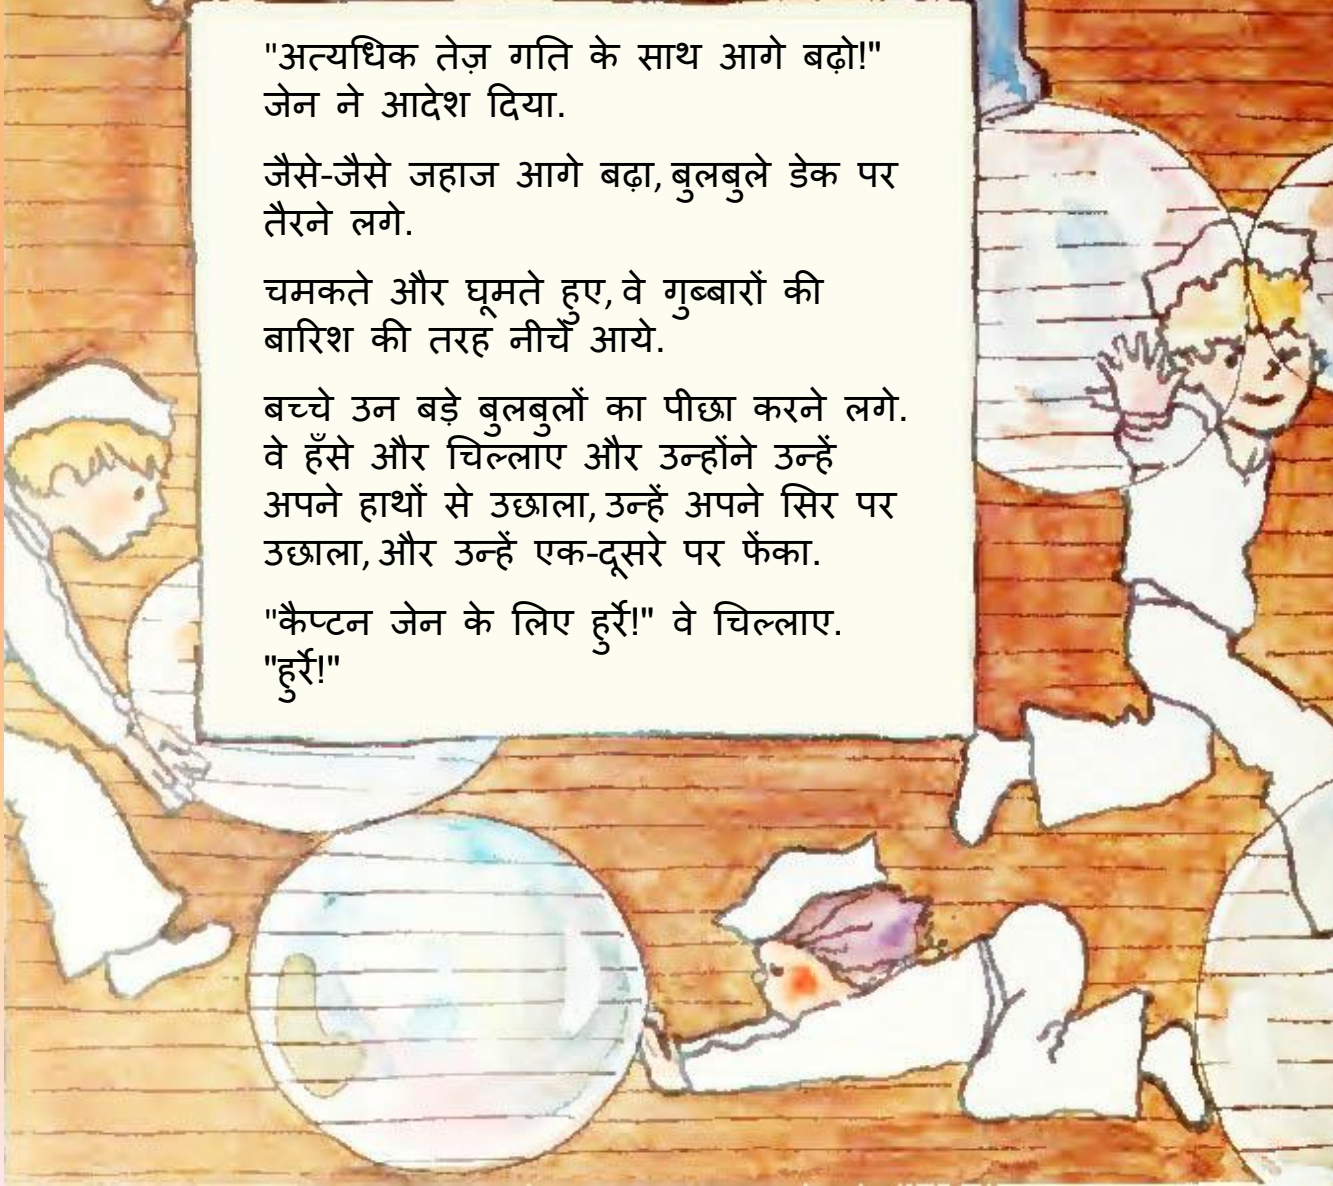 "अत्यधिक तेज़ गति के साथ आगे बढ़ो!"
जेन ने आदेश दिया.
जैसे-जैसे जहाज आगे बढ़ा, बुलबुले डेक पर
तैरने लगे.
चमकते और घूमते हुए, वे गुब्बारों की
बारिश की तरह नीचे आये.
बच्चे उन बड़े बुलबुलों का पीछा करने लगे.
वे हँसे और चिल्लाए और उन्होंने उन्हें
अपने हाथों से उछाला, उन्हें अपने सिर पर
उछाला, और उन्हें एक-दूसरे पर फेंका.
"कैप्टन जेन के लिए हुर्रे!" वे चिल्लाए.
"हुर्रे!"